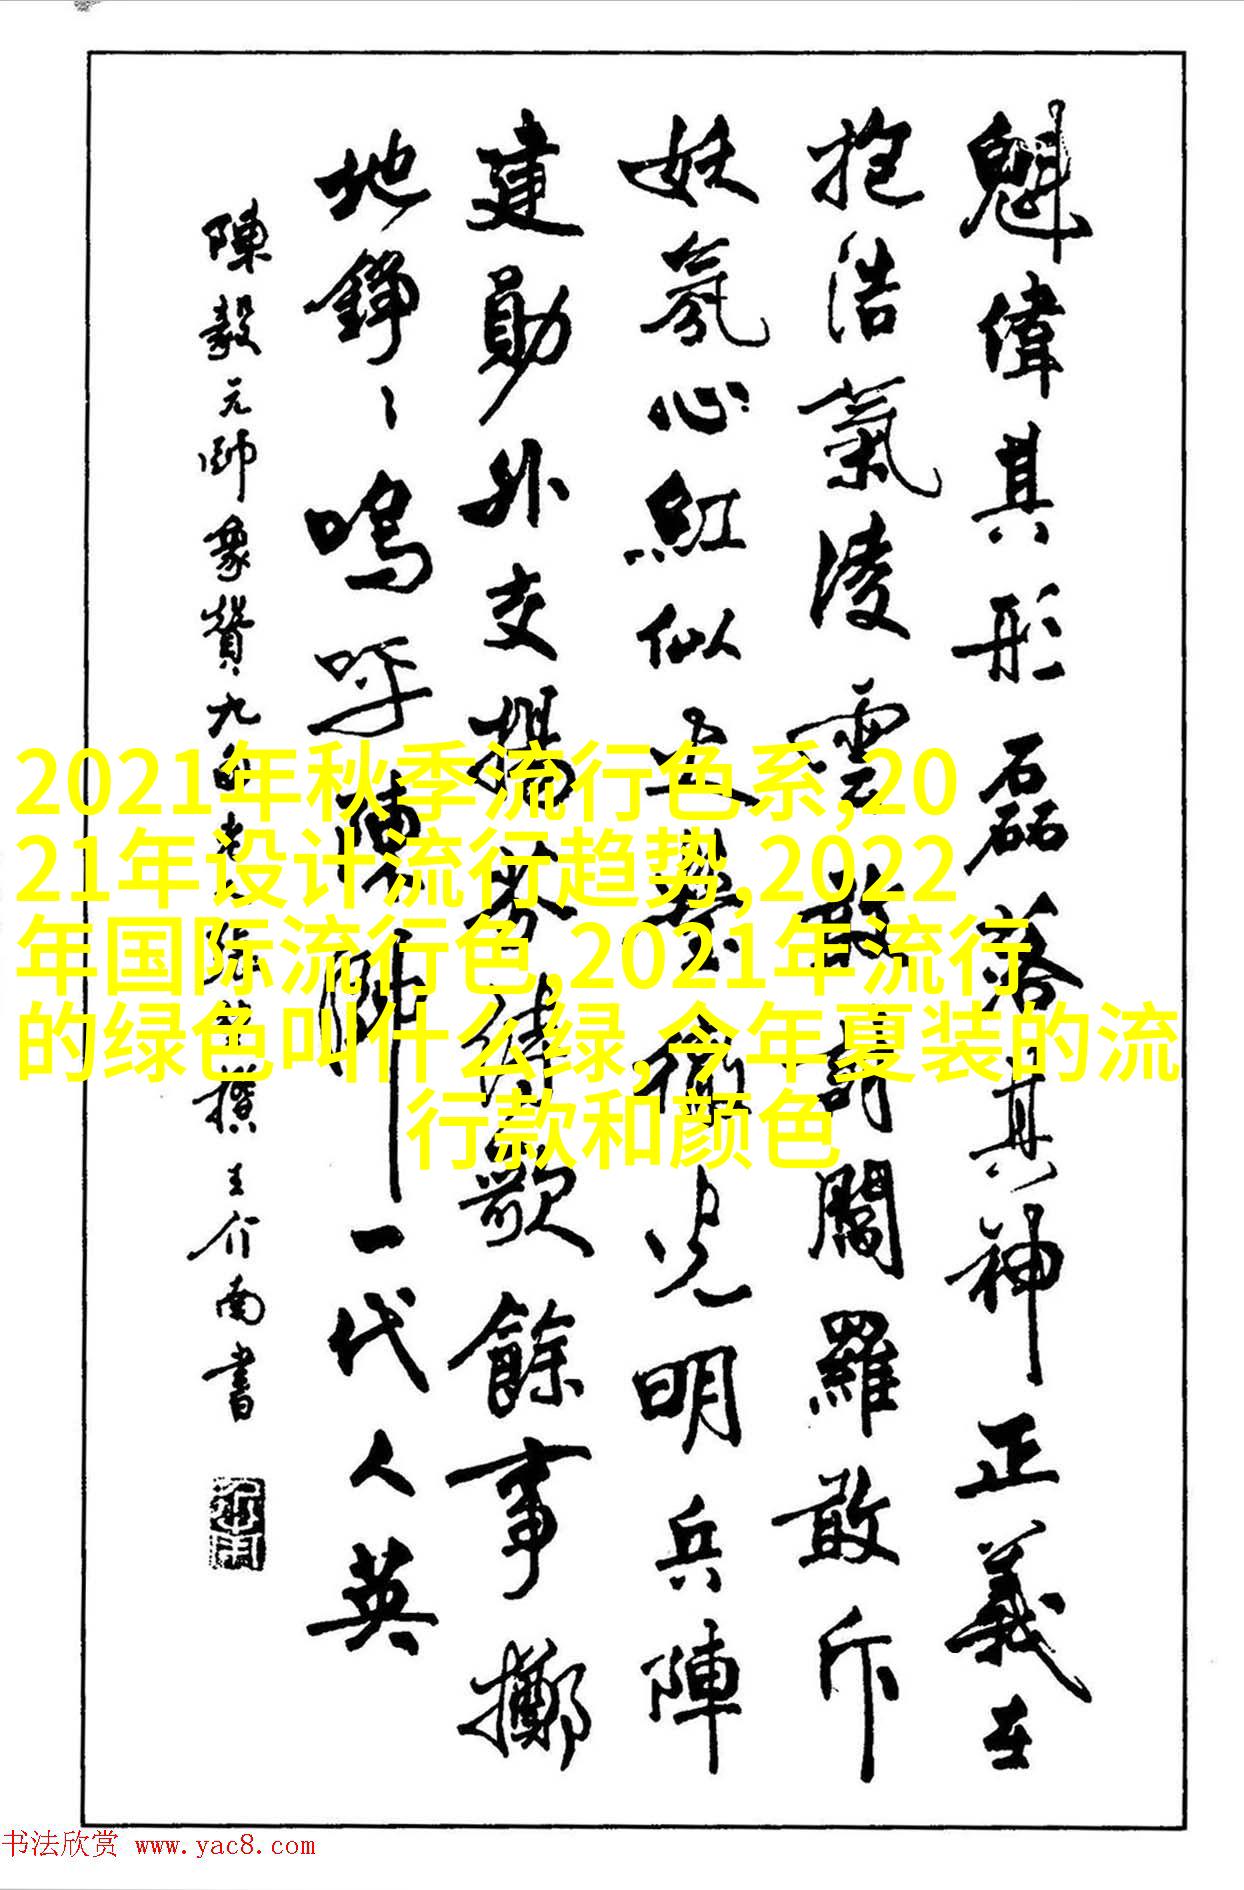 魁偉其形磊落其神正義在
抱浩氣凌雲敢討閻羅敢斥
妖氛心紅似火譽徹光明兵陣
建勛外交揚芬詩歌餘事擲
地錚〻嗚呼陳帥一代人英
陳毅元帥象贊九
撰王介南書
2021年秋季流行色系,20
21年设计流行趋势,2022
年国际流行色,2021年流行
的绿色叫什么绿,今年夏装的流
行款和颜色
书法欣赏 www.yac8.com